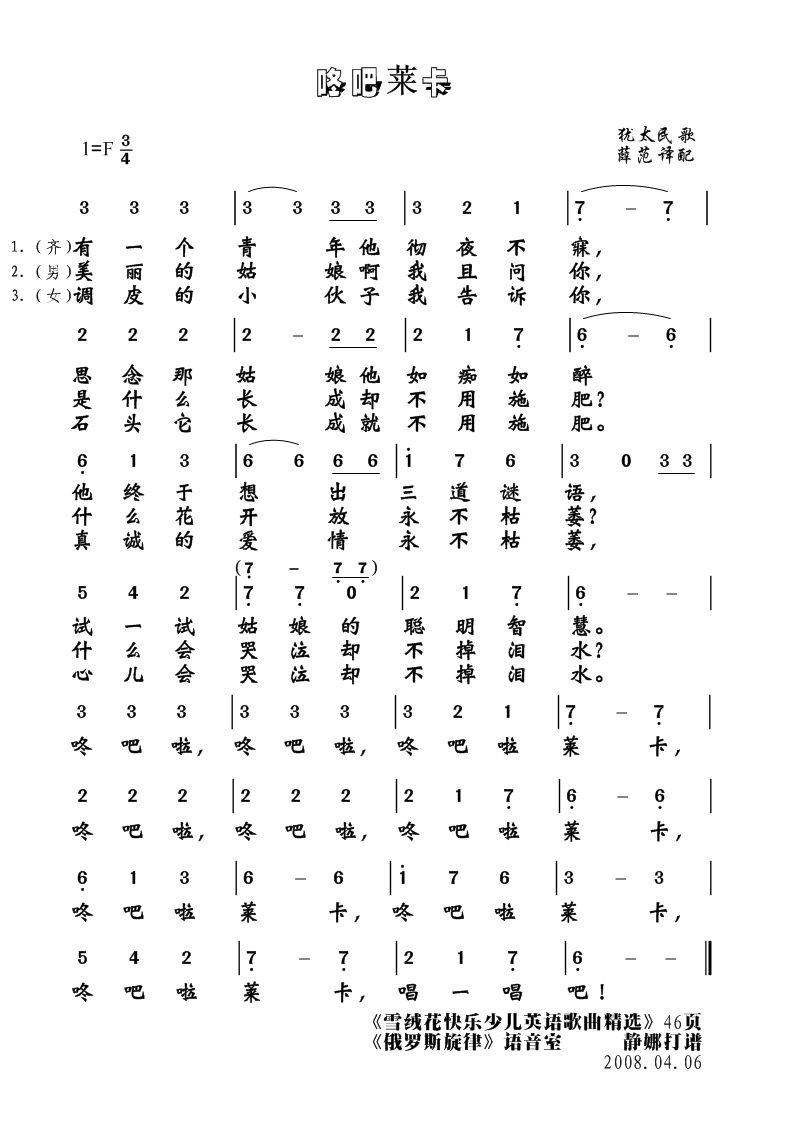 咚吧莱卡
1=F 3/4
犹太民歌
薛范译配
3 3 3 | 3 3 3 3 | 3 2 1 | 7 – 7 |
1.(齐)有一个青年他彻夜不寐,
2.(男)美丽的姑娘啊我且问你,
3.(女)调皮的小伙子我告诉你,
2 2 2 | 2 – 2 2 | 2 1 7 | 6 – 6 |
思念那姑娘他如痴如醉
是什么长成却不用施肥?
石头它长成就不用施肥。
6 1 3 | 6 6 6 6 | 1 7 6 | 3 0 3 3 |
他终于想出三道谜语,
什么花开放永不枯萎?
真诚的爱情永不枯萎,
(7 – 7 7)
5 4 2 | 7 7 0 | 2 1 7 | 6 – – |
试一试姑娘的聪明智慧。
什么会哭泣却不掉泪水?
心儿会哭泣却不掉泪水。
3 3 3 | 3 3 3 | 3 2 1 | 7 – 7 |
咚吧啦,咚吧啦,咚吧啦莱卡,
2 2 2 | 2 2 2 | 2 1 7 | 6 – 6 |
咚吧啦,咚吧啦,咚吧啦莱卡,
6 1 3 | 6 – 6 | 1 7 6 | 3 – 3 |
咚吧啦莱卡,咚吧啦莱卡,
5 4 2 | 7 – 7 | 2 1 7 | 6 – ‖
咚吧啦莱卡,唱一唱吧!
《雪绒花快乐少儿英语歌曲精选》46页
《俄罗斯旋律》语音室 静娜打谱
2008.04.06